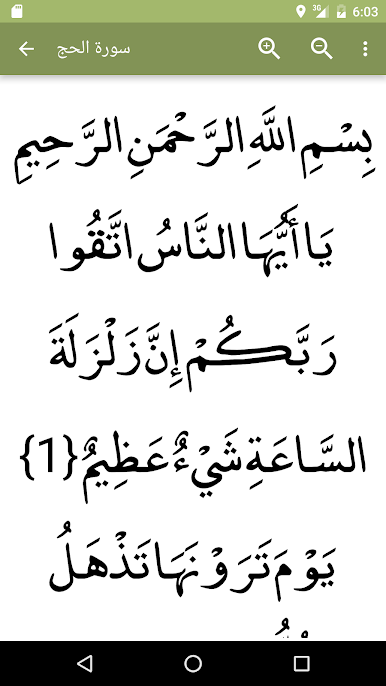 3G 6:03
سورة الحج
بِسْمِ اللَّهِ الرَّحْمَنِ الرَّحِيمِ
يَا أَيُّهَا النَّاسُ اتَّقُوا
رَبَّكُمْ إِنَّ زَلْزَلَةَ
السَّاعَةِ شَيْءٌ عَظِيمٌ {1}
يَوْمَ تَرَوْنَهَا تَذْهَلُ